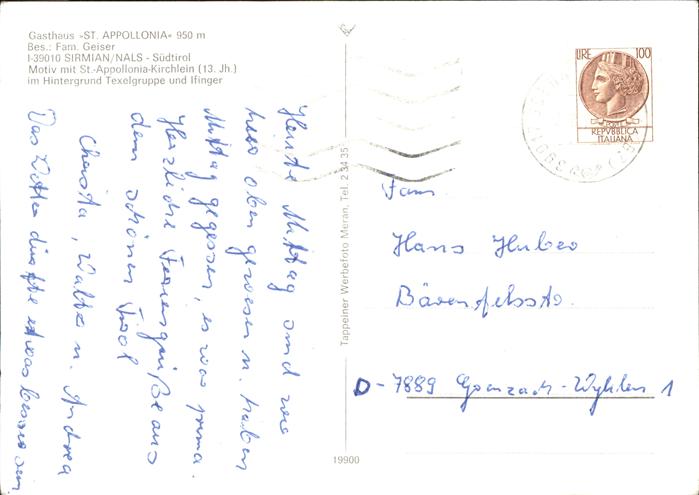 Gasthaus »ST. APPOLLONIA« 950 m
Bes.: Fam. Geiser
I-39010 SIRMIAN/NALS - Südtirol
Motiv mit St.-Appollonia-Kirchlein (13. Jh.)
im Hintergrund Texelgruppe und Ifinger
Heute Mittag sind wir
hier oben gewesen u. haben
Mittag gegessen, es war prima.
Herzliche Feriengrüße aus
dem schönen Tirol
Christa, Walter u. Andrea
Das Wetter dürfte etwas besser sein
Tappeiner Werbefoto Meran, Tel. 2 34 35
19900
LIRE 100
REPVBBLICA
ITALIANA
Fam.
Hans Huber
Bärenfelsstr.
D-7889 Grenzach-Wyhlen 1